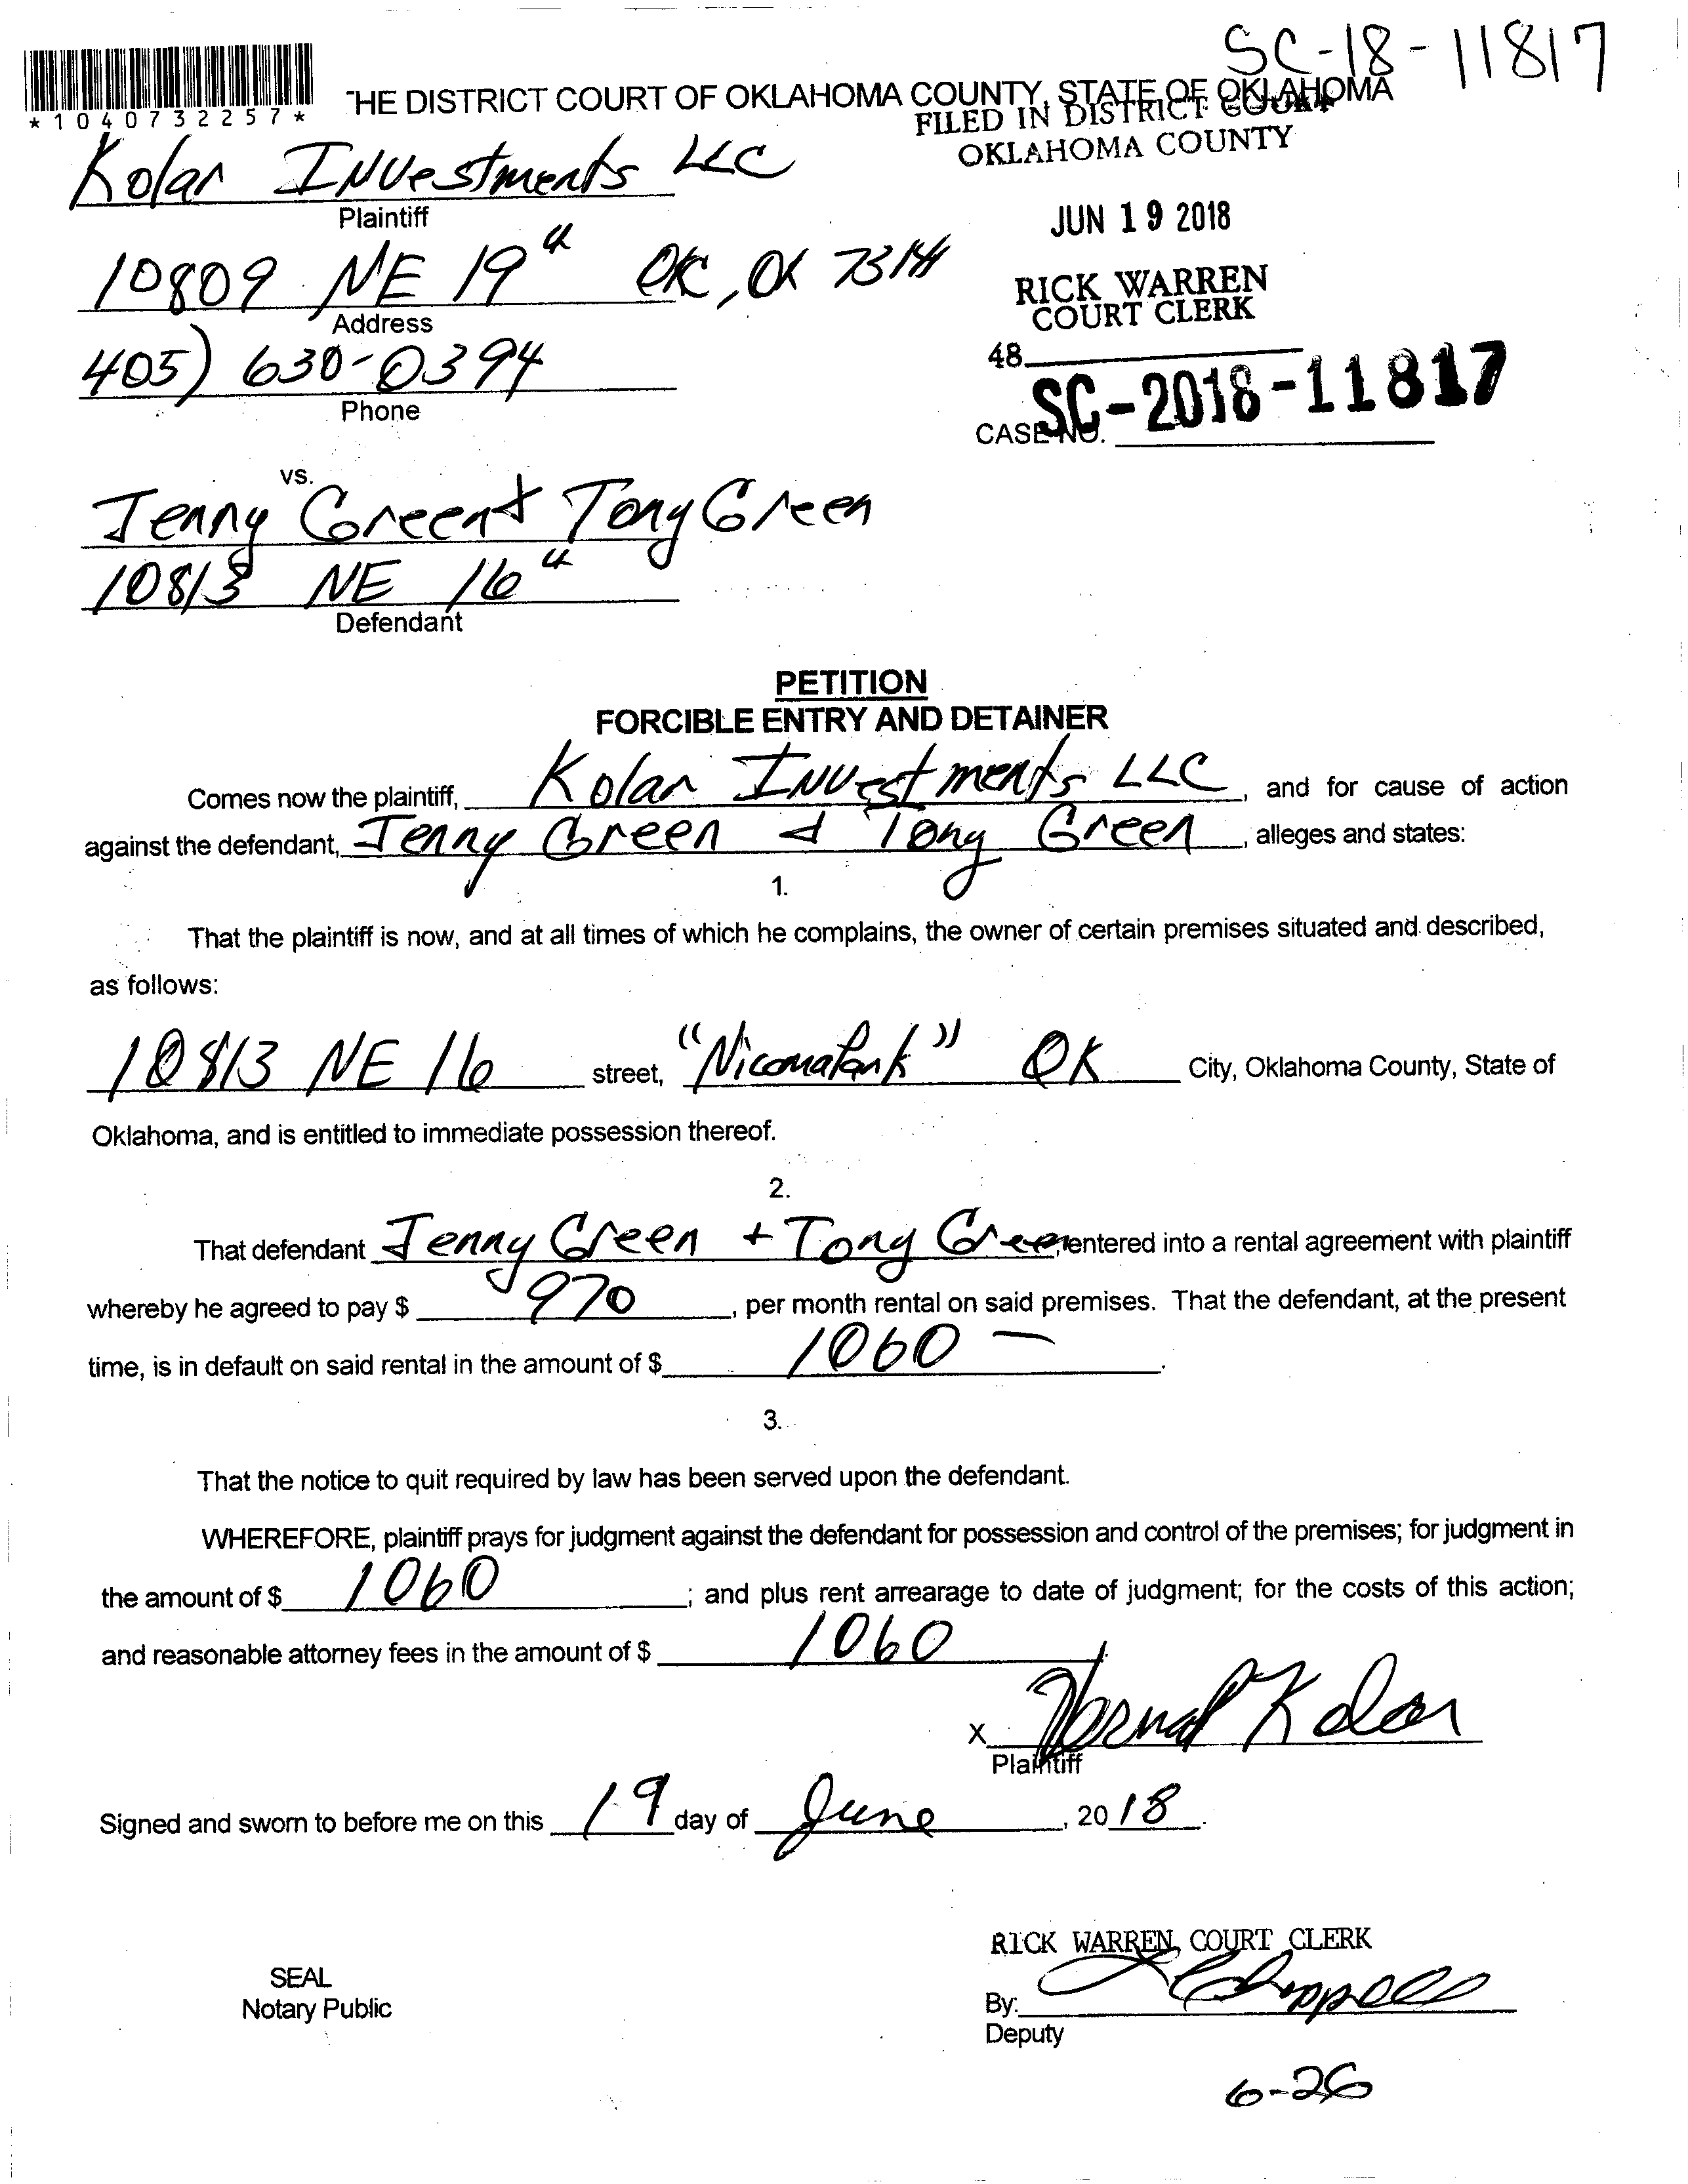 SC-18-11817
*1040732257*
THE DISTRICT COURT OF OKLAHOMA COUNTY, STATE OF OKLAHOMA
FILED IN DISTRICT COURT
OKLAHOMA COUNTY
Kolar Investments LLC
Plaintiff
JUN 19 2018
10809 NE 19th OKC, OK
Address
RICK WARREN
COURT CLERK
405) 630-0394
Phone
48
SC-2018-11817
CASE NO.
vs.
Jenny Green & Tony Green
10813 NE 16th
Defendant
PETITION
FORCIBLE ENTRY AND DETAINER
Comes now the plaintiff, Kolar Investments LLC, and for cause of action
against the defendant, Jenny Green & Tony Green, alleges and states:
1.
That the plaintiff is now, and at all times of which he complains, the owner of certain premises situated and described,
as follows:
10813 NE 16 street, "Nicoma Park" OK City, Oklahoma County, State of
Oklahoma, and is entitled to immediate possession thereof.
2.
That defendant Jenny Green + Tony Green, entered into a rental agreement with plaintiff
whereby he agreed to pay $ 970, per month rental on said premises. That the defendant, at the present
time, is in default on said rental in the amount of $ 1060 —.
3.
That the notice to quit required by law has been served upon the defendant.
WHEREFORE, plaintiff prays for judgment against the defendant for possession and control of the premises; for judgment in
the amount of $ 1060; and plus rent arrearage to date of judgment; for the costs of this action;
and reasonable attorney fees in the amount of $ 1060.
X Kolar
Plaintiff
Signed and sworn to before me on this 19 day of June, 2018.
RICK WARREN, COURT CLERK
SEAL
Notary Public
By:
Deputy
6-26